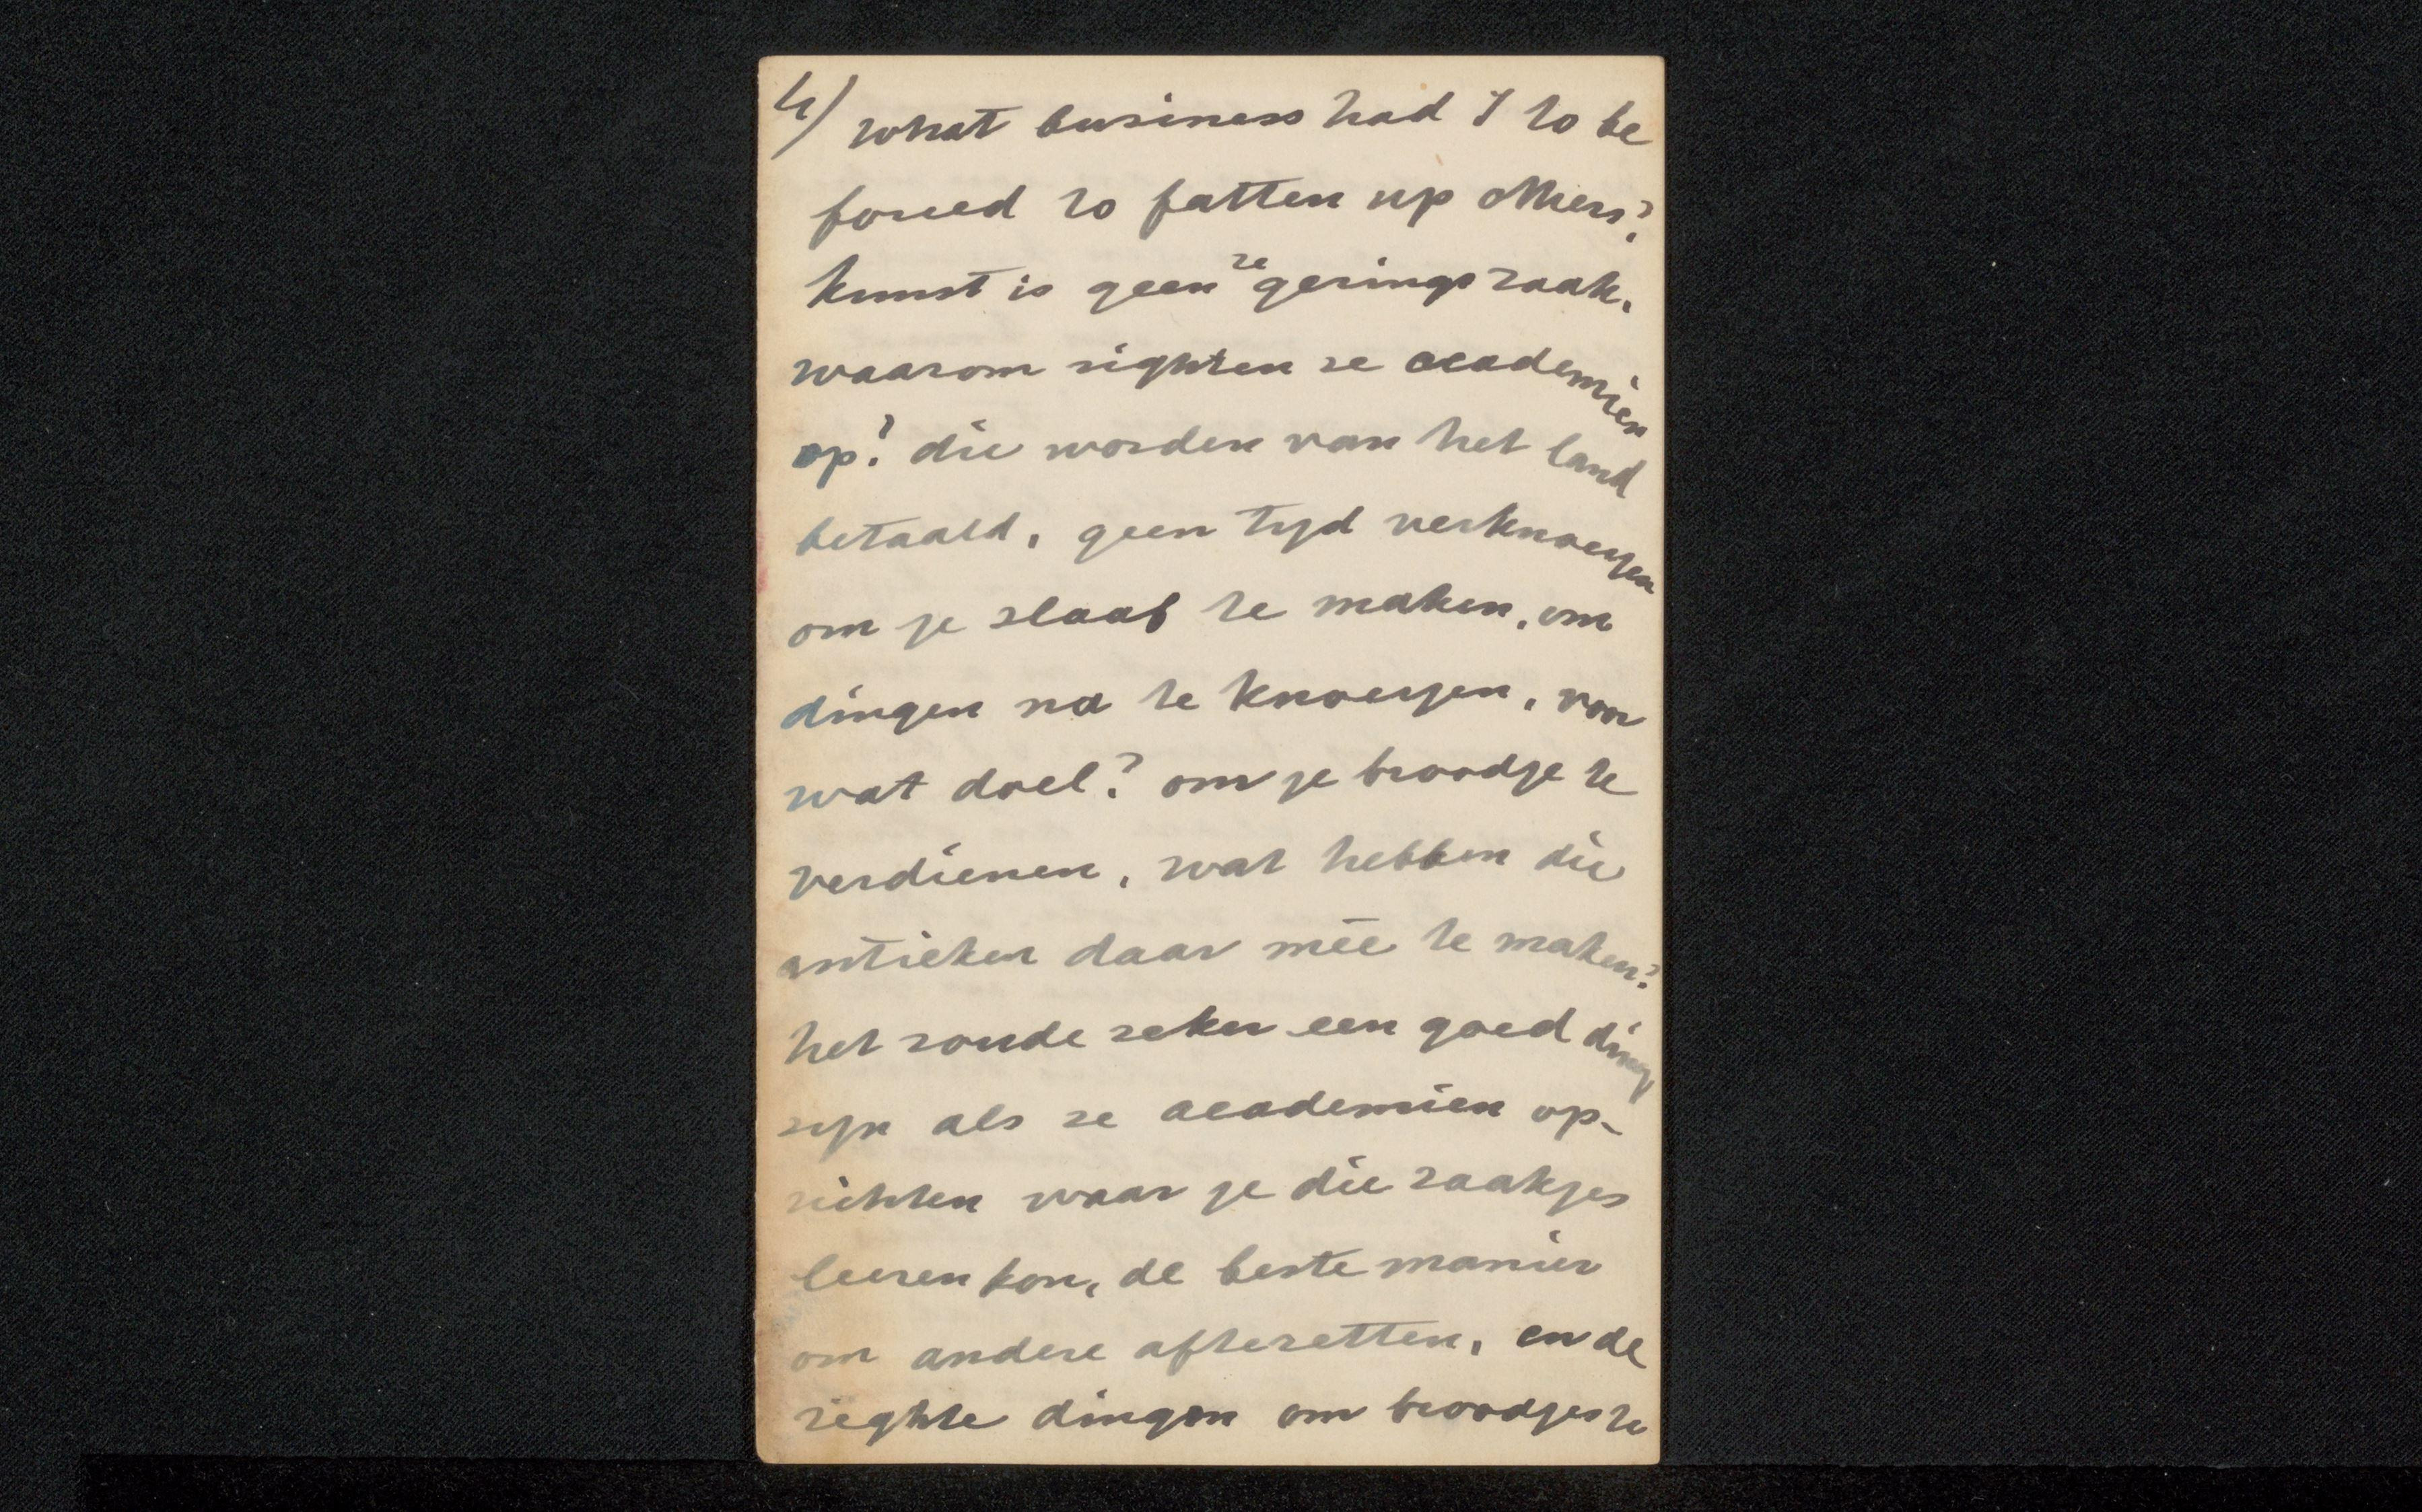 4) what business had I to be
forced to fatten up others?
kunst is geen ze geringe zaak.
waarom righten ze academien
op? die worden van het land
betaald, geen tyd verknoeyen
om je slaaf te maken, om
dingen na te knoeyen, voor
wat doel? om je broodje te
verdienen, wat hebben die
antieken daar meê te maken?
het zoude zeker een goed ding
zyn als ze academien op-
richten waar je die zaakjes
leeren kon, de beste manier
om andere aftezetten, en de
reghte dingen om broodjes te